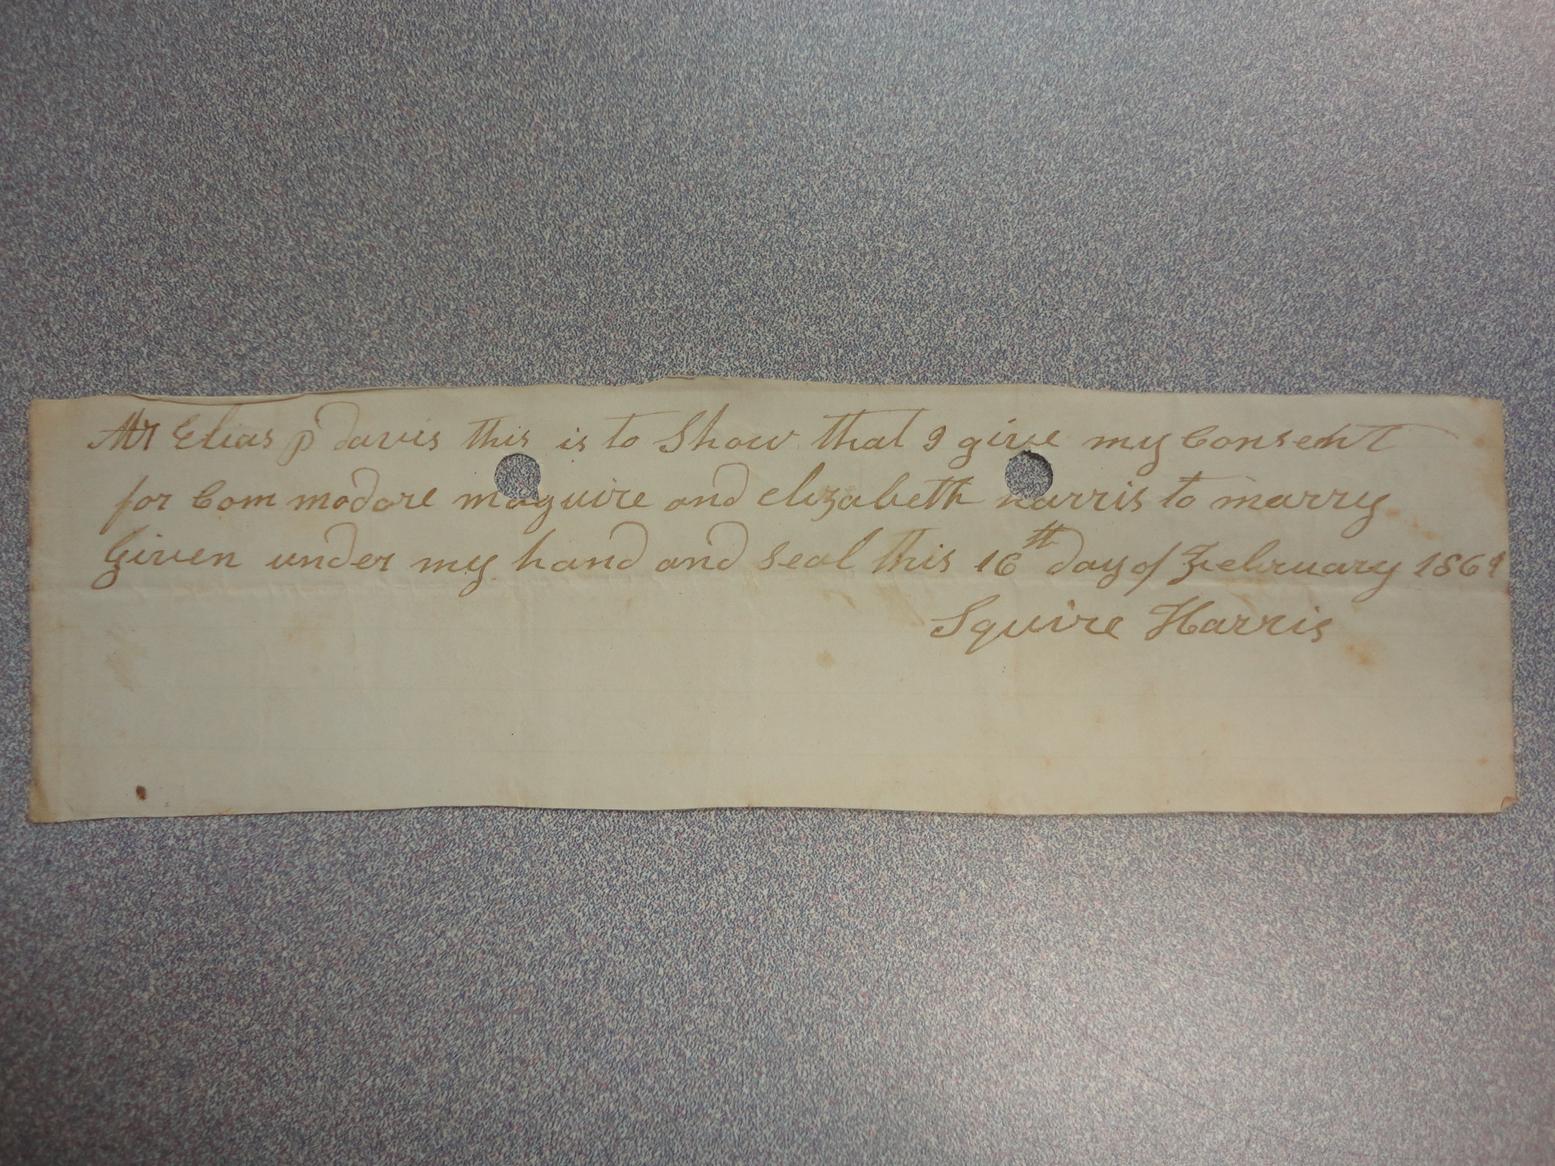 Mr Elias p davis this is to Show that I give my Consent
for Com modore maguire and elizabeth harris to marry
Given under my hand and seal this 16th day of February 1869
Squire Harris